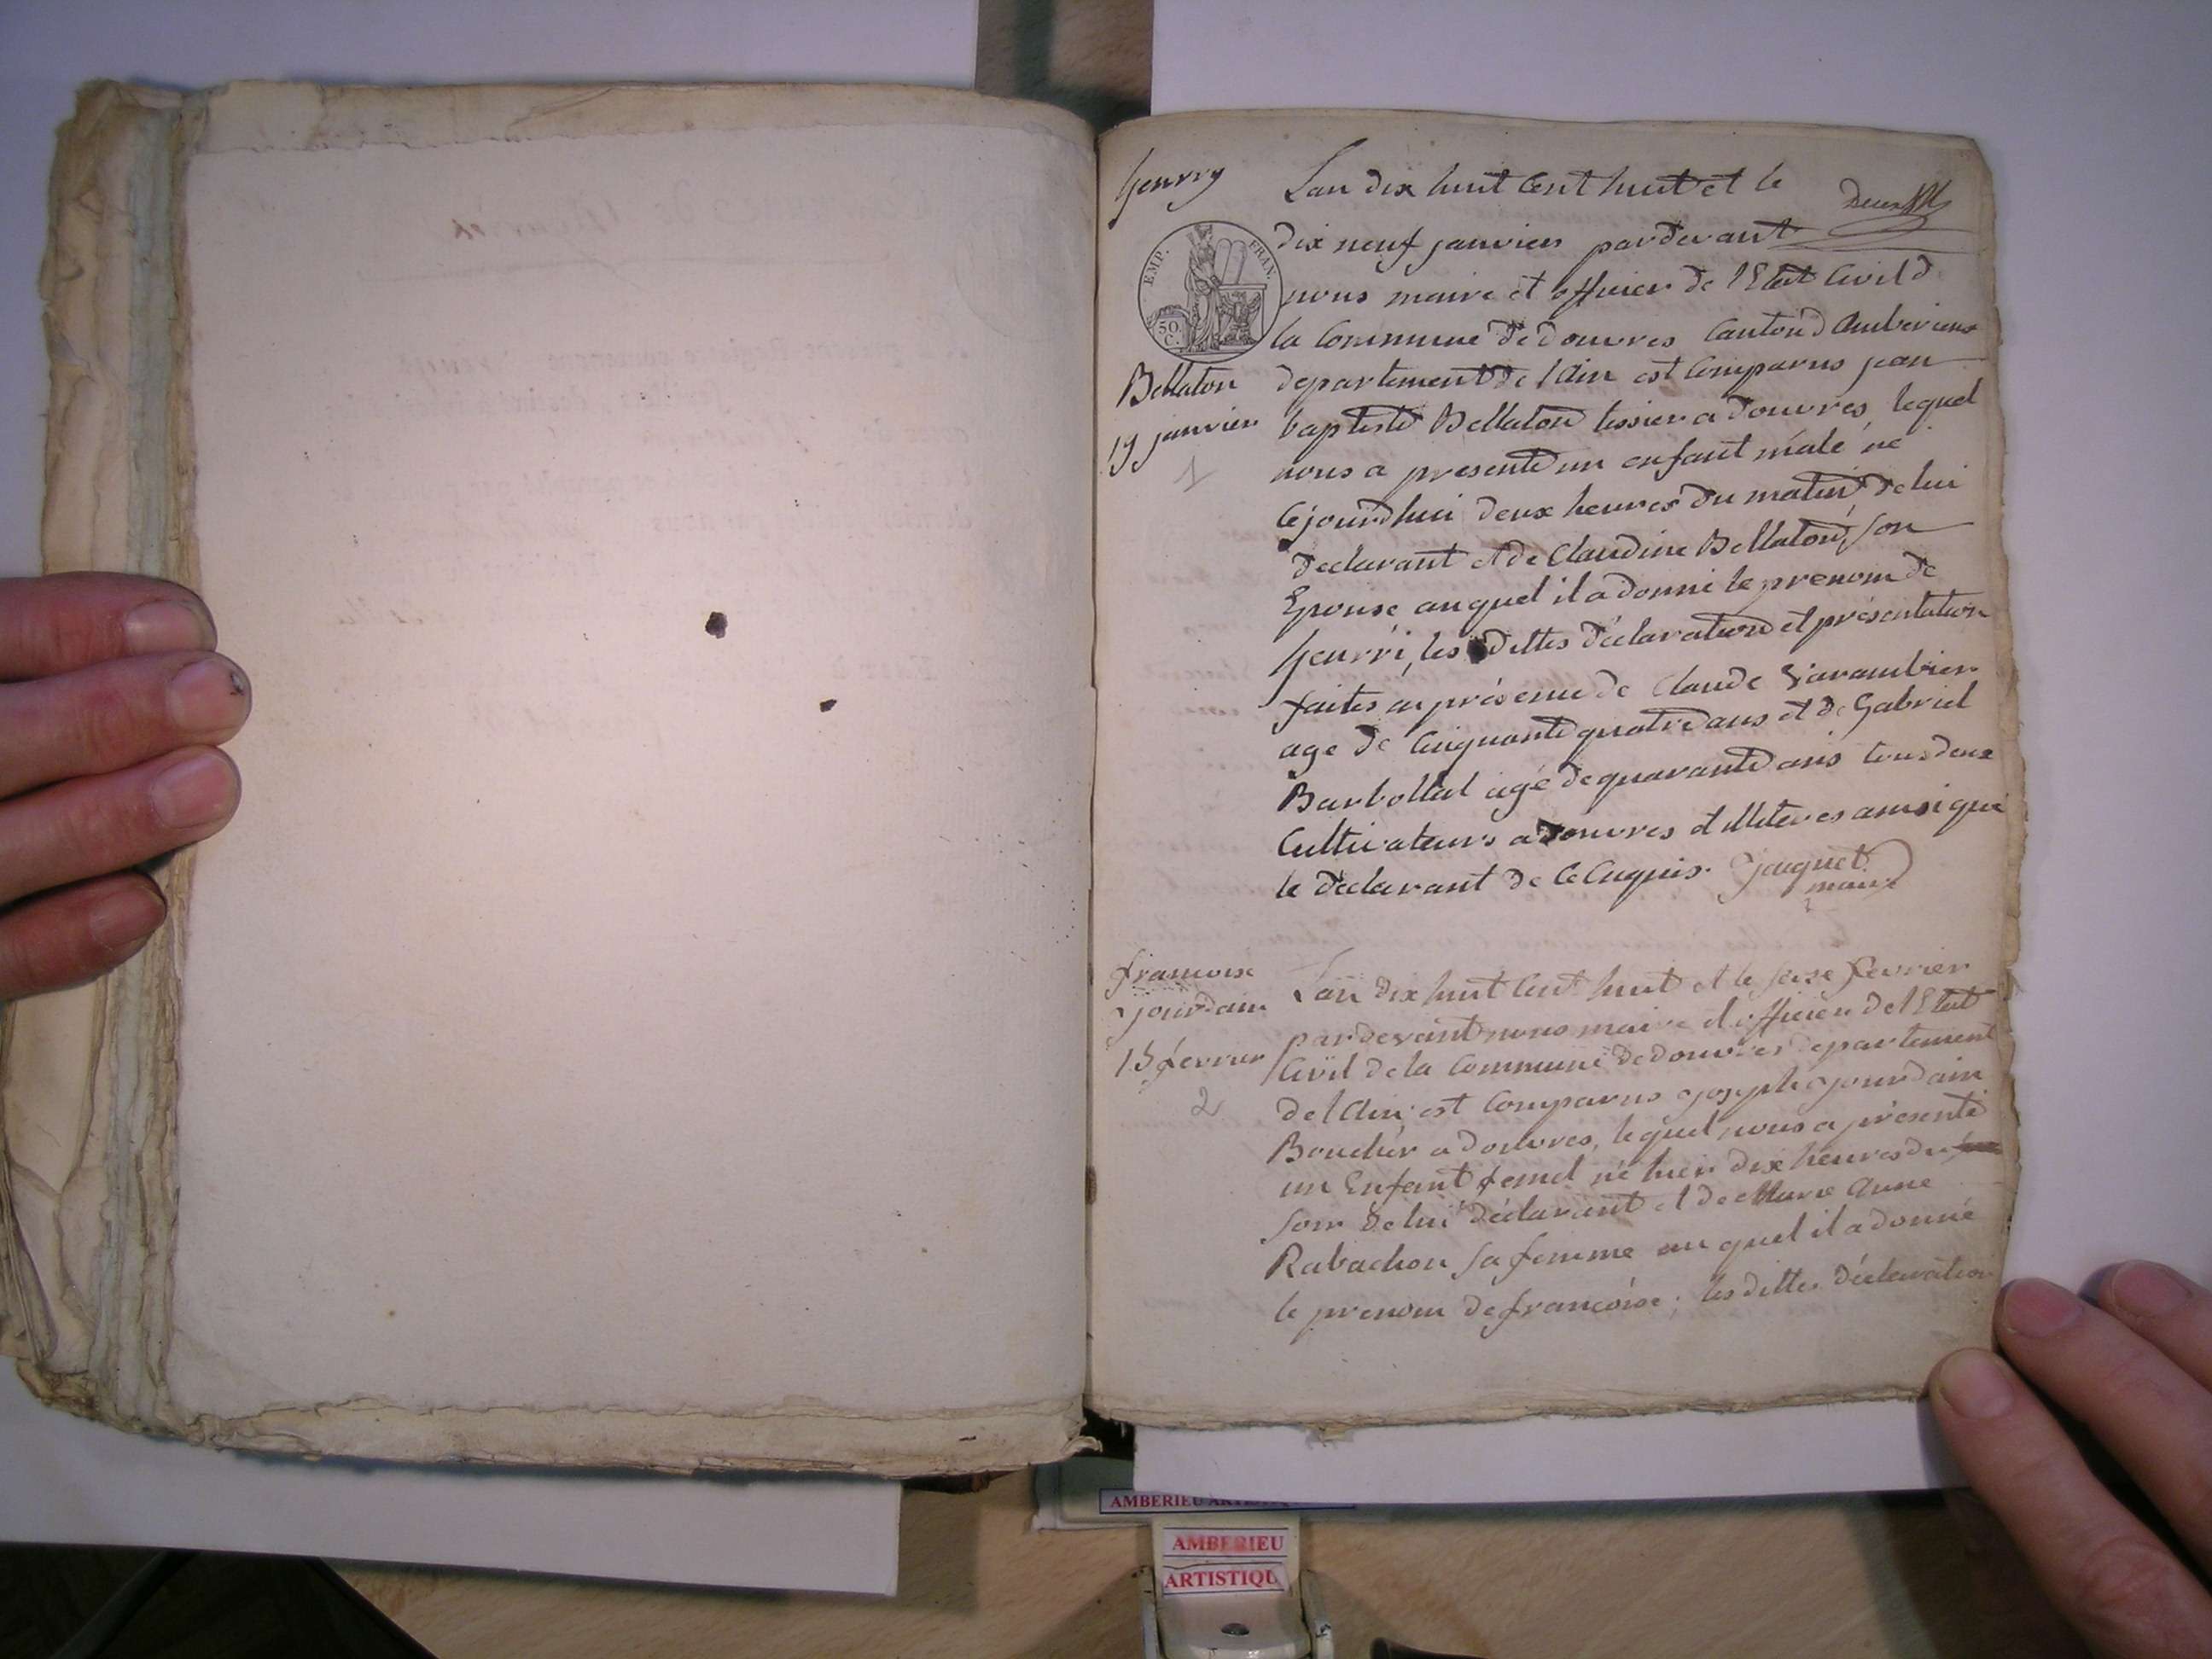 henrry
Bellaton
19 janvier
1
Lan dix huit Cent huit et le
dix neuf janvier pardevant
nous maire et officier de l'Etat Civil d
la Commune de douvres Canton d Amberieux
departement de l'Ain est Comparus jean
baptiste Bellaton tissier a douvres lequel
nous a presenté un enfant male né
Cejourdhui deux heures du matin de lui
declarant et de Claudine Bellaton, son
Epouse, auquel il a donné le prenom de
henrri, les dittes déclaration et présentation
faites en présence de Claude Varambier
age de Cinquante quatre ans et de Gabriel
Barbollat agé de quarante ans tous deux
Cultivateurs a douvres et illiteres ainsi que
le declarant de Ce Enquis. Jauguet
maire
EMP. FRAN.
50.
C.
francoise
jourdain
15 fevrier
2
Lan dix huit Cent huit et le seize fevrier
pardevant nous maire et officier de l Etat
Civil de la Commune de douvres departement
de l Ain; est Comparus joseph jourdain
Boucher a douvres, lequel nous a présenté
un Enfant femel né hier dix heures du
soir de lui déclarant et de Marie Anne
Rabachon sa femme au quel il a donné
le prenom de françoise; les dittes déclaration
AMBERIEU
AMBERIEU
ARTISTIQU